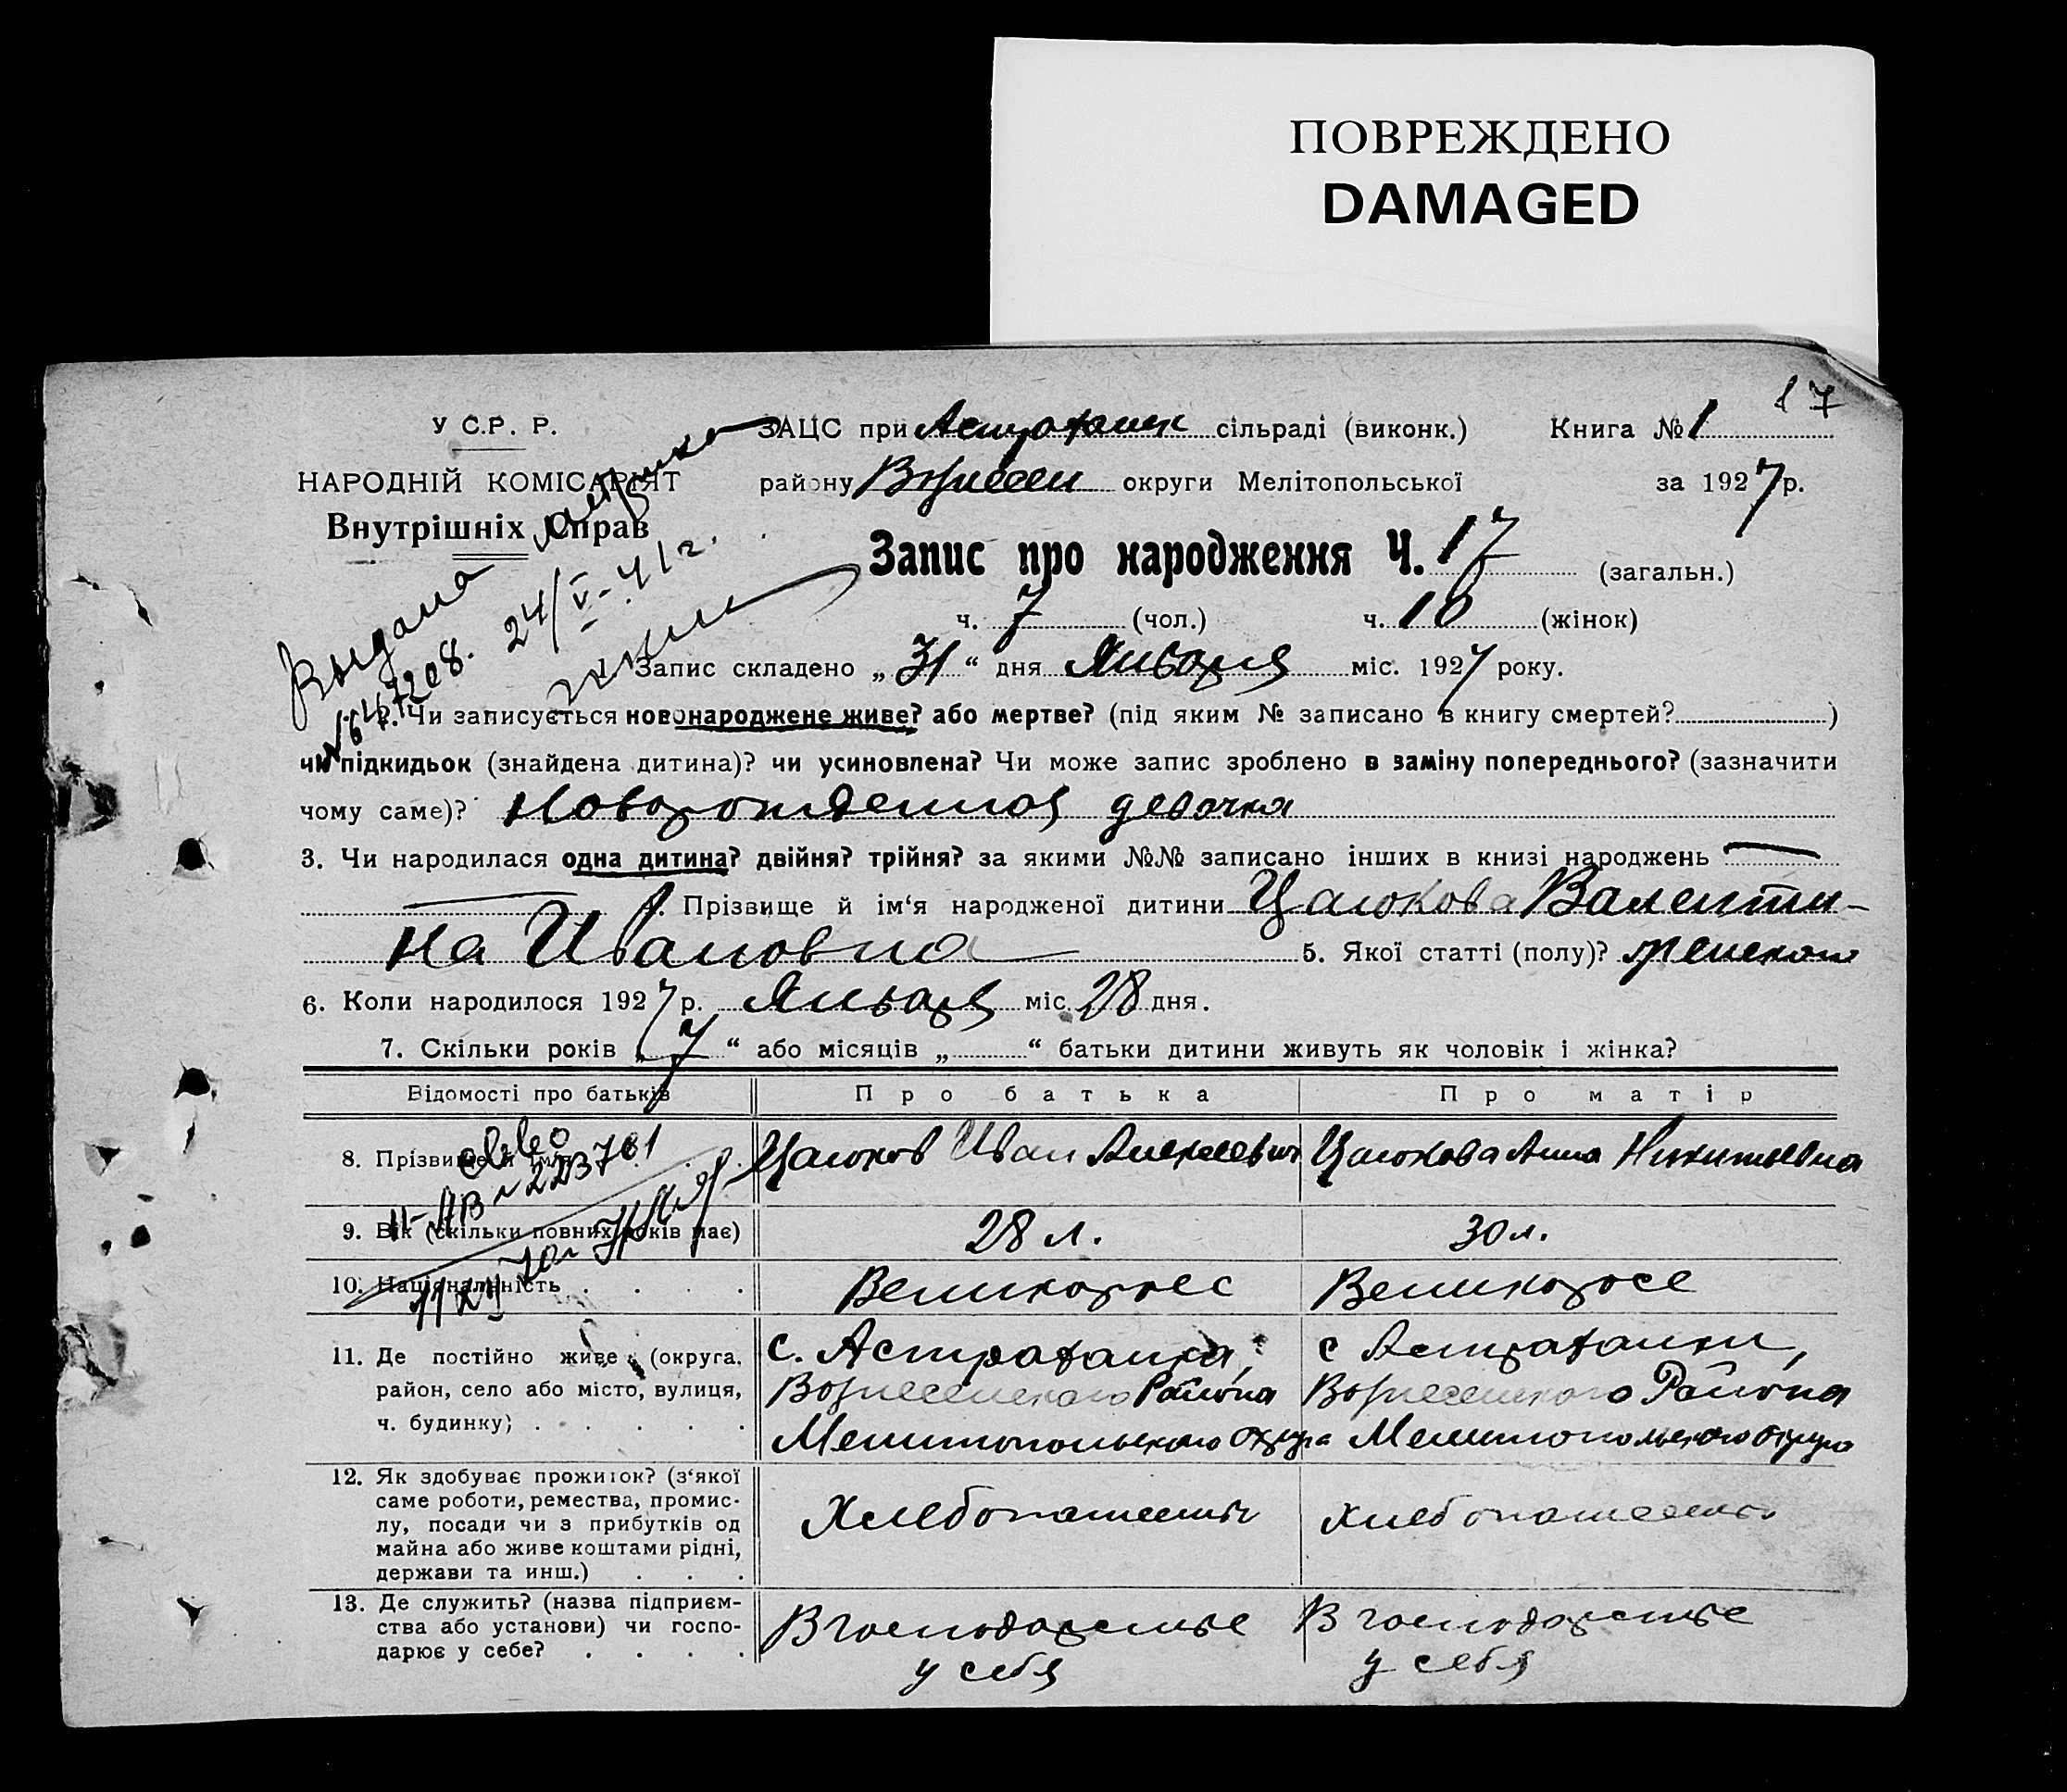 ПОВРЕЖДЕНО
DAMAGED
17
У С.Р. Р.
НАРОДНІЙ КОМІСАРІЯТ
Внутрішніх Справ
Выдана
№ 647208. 24/V-41 г.
ЗАЦС при Астрахан сільраді (виконк.) Книга № 1
району Вознесен округи Мелітопольської за 1927 р.
Запис про народження Ч. 17 (загальн.)
ч. 7 (чол.) ч. 10 (жінок)
Запис складено „ 31 “ дня Января міс. 1927 року.
2. Чи записується новонароджене живе? або мертве? (під яким № записано в книгу смертей? )
чи підкидьок (знайдена дитина)? чи усиновлена? Чи може запис зроблено в заміну попереднього? (зазначити
чому саме)? Новорожденная девочка
3. Чи народилася одна дитина? двійня? трійня? за якими №№ записано інших в книзі народжень —
— 4. Прізвище й ім‘я народженої дитини Цалокова Валенти-
на Ивановна 5. Якої статті (полу)? женского
6. Коли народилося 1927 р. Января міс. 28 дня.
7. Скільки років „ 7 “ або місяців „ “ батьки дитини живуть як чоловік і жінка?
Відомості про батьків Про батька Про матір
8. Прізвище й ім‘я Цалоков Иван Алексеевич Цалокова Анна Никитьевна
9. Вік (скільки повних років має) 28 л. 30 л.
10. Національність Великоросс Великоросс
11. Де постійно живе (округа, с. Астраханка, с Астраханки,
район, село або місто, вулиця, Вознесенского Района Вознесенского Района
ч. будинку) Мелитопольского Округа Мелитопольского Округа
12. Як здобуває прожиток? (з‘якої
саме роботи, ремества, промис-
лу, посади чи з прибутків од Хлебопашество Хлебопашество
майна або живе коштами рідні,
держави та инш.)
13. Де служить? (назва підприєм-
ства або установи) чи госпо- В господарстве В господарстве
дарює у себе? у себя у себя